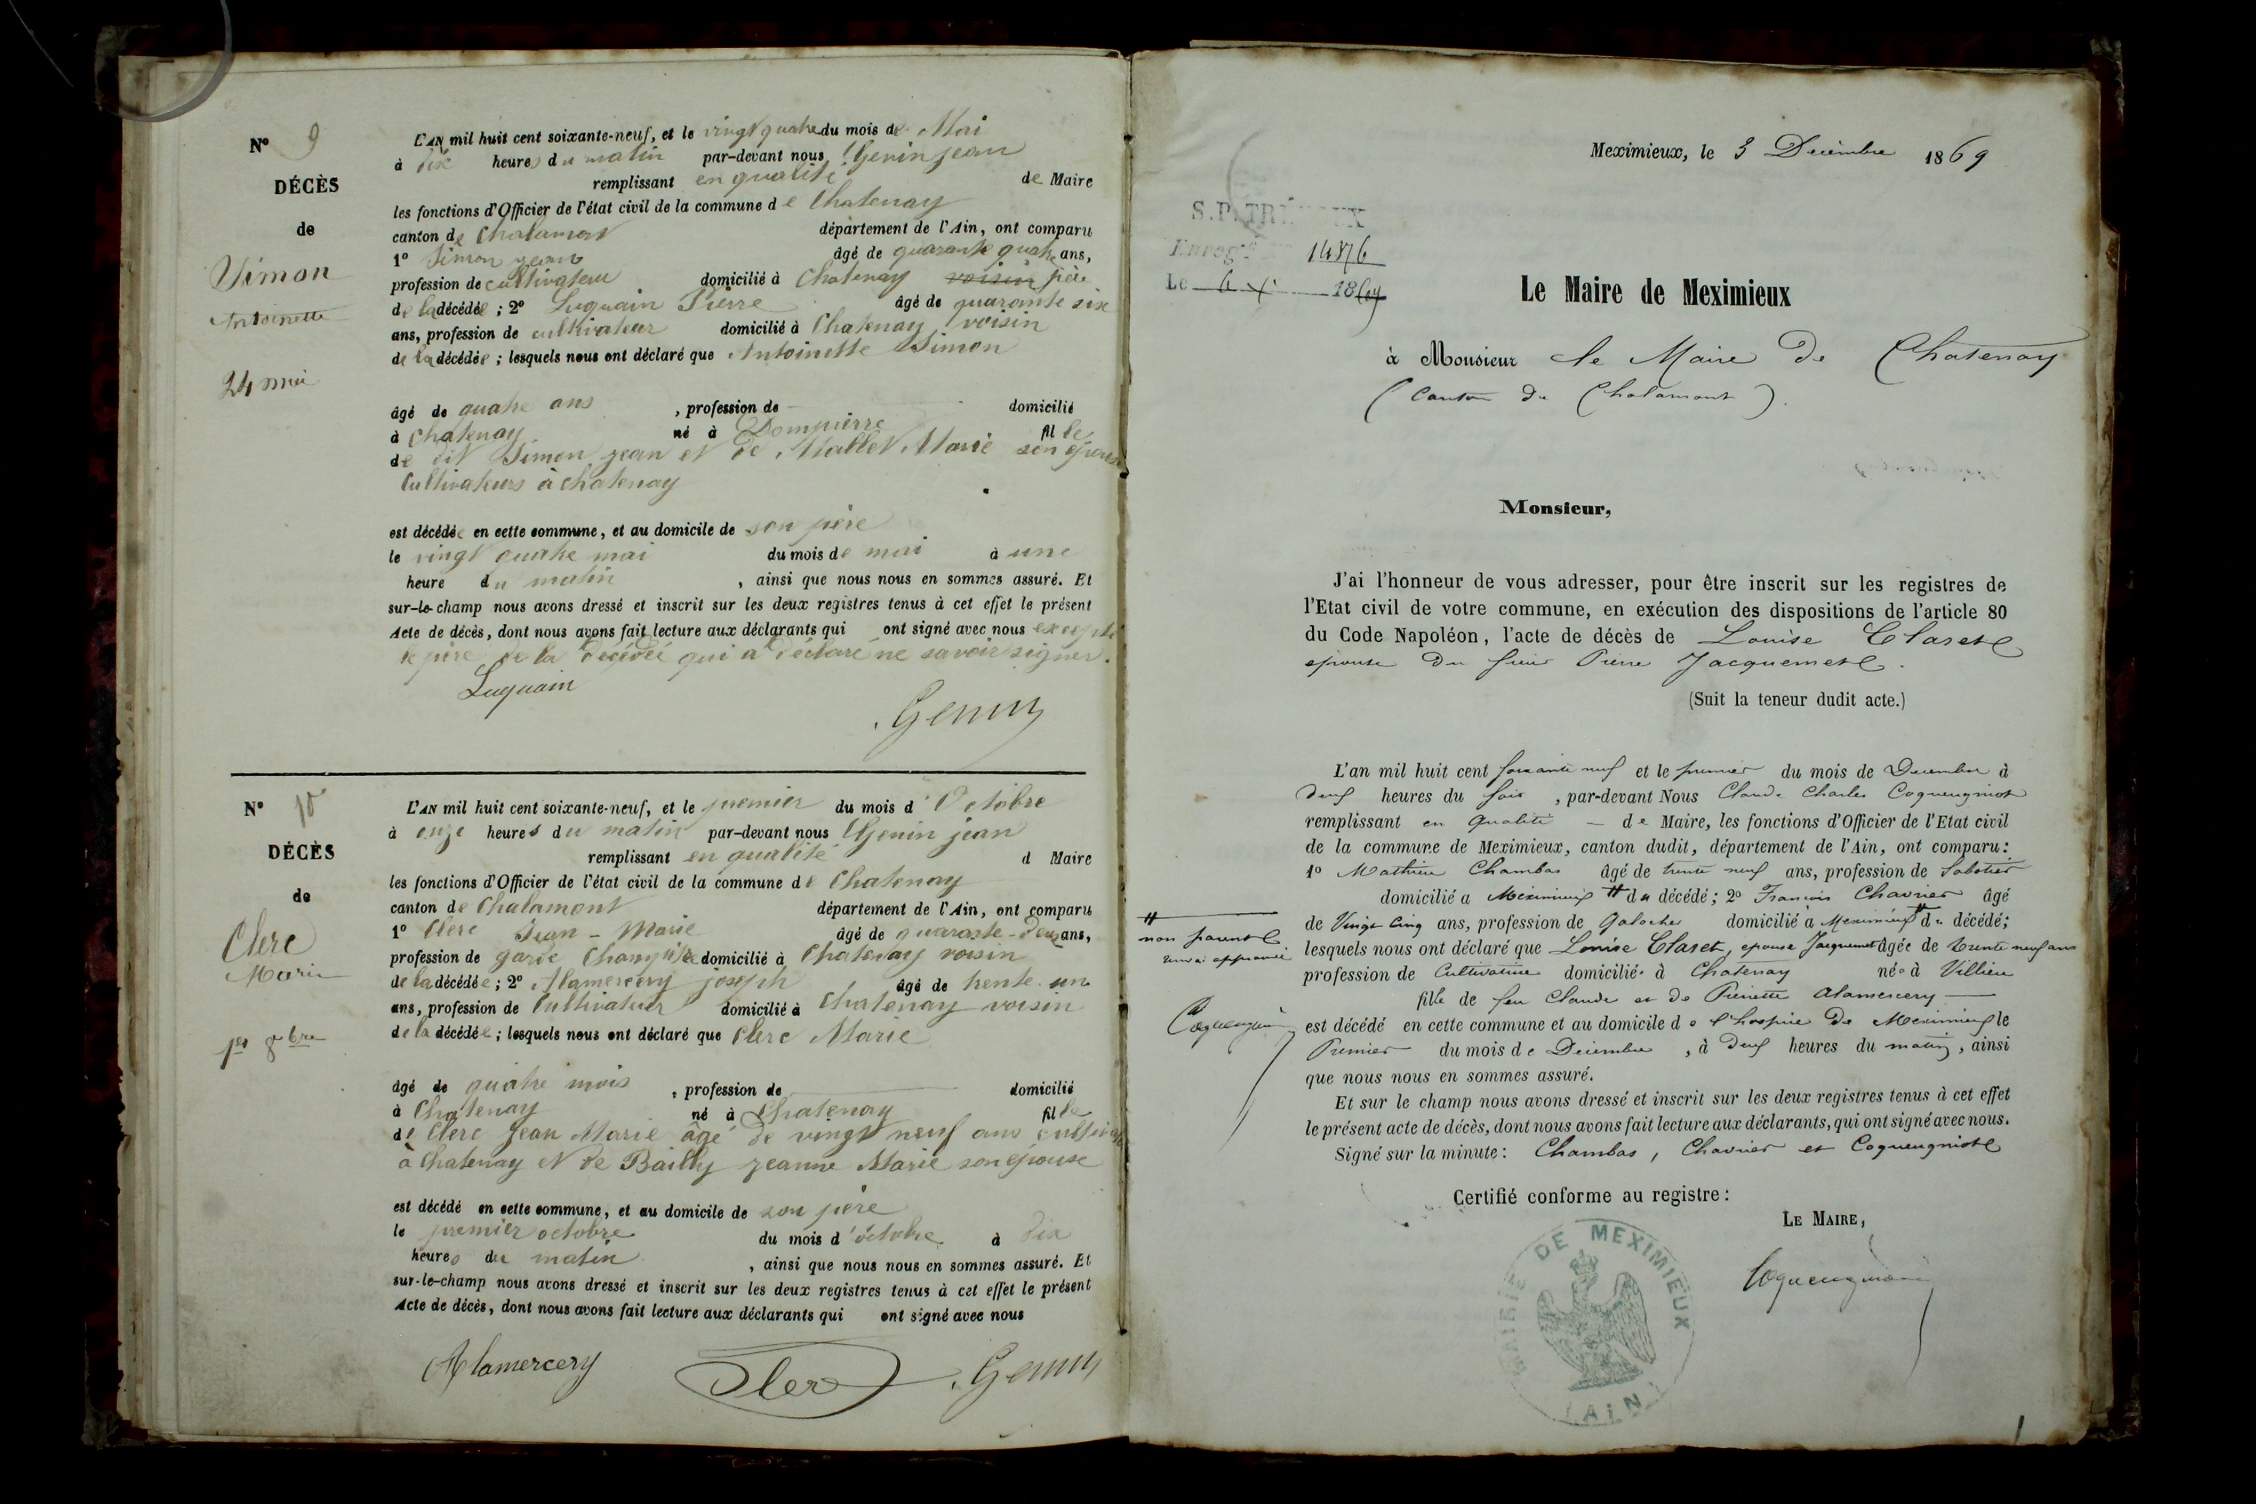 N° 9
DÉCÈS
de
Simon
Antoinette
24 mai
L'AN mil huit cent soixante-neuf, et le vingt quatre du mois de Mai
à dix heures du matin par-devant nous Genin jean
remplissant en qualité de Maire
les fonctions d'Officier de l'état civil de la commune de Chatenay
canton de Chalamont département de l'Ain, ont comparu
1° Simon jean âgé de quarante quatre ans,
profession de cultivateur domicilié à Chatenay voisin père
de la décédée ; 2° Luquain Pierre âgé de quarante six
ans, profession de cultivateur domicilié à Chatenay voisin
de la décédée ; lesquels nous ont déclaré que Antoinette Simon
âgé de quatre ans , profession de domicilié
à Chatenay né à Dompierre fille
de dit Simon jean et de Mallet Marie son épouse
Cultivateurs à chatenay
est décédée en cette commune, et au domicile de son père
le vingt quatre mai du mois de mai à une
heure du matin , ainsi que nous nous en sommes assuré. Et
sur-le-champ nous avons dressé et inscrit sur les deux registres tenus à cet effet le présent
Acte de décès, dont nous avons fait lecture aux déclarants qui ont signé avec nous excepté
le père de la décédée qui a déclaré ne savoir signer.
Luquain
Genin
N° 10
DÉCÈS
de
Clerc
Marie
1er 8bre
L'AN mil huit cent soixante-neuf, et le premier du mois d'Octobre
à onze heures du matin par-devant nous Genin jean
remplissant en qualité d Maire
les fonctions d'Officier de l'état civil de la commune de Chatenay
canton de Chalamont département de l'Ain, ont comparu
1° Clerc Jean-Marie âgé de quarante-deux ans,
profession de garde Champêtre domicilié à Chatenay voisin
de la décédée ; 2° Alamercery joseph âgé de trente un
ans, profession de Cultivateur domicilié à Chatenay voisin
de la décédée ; lesquels nous ont déclaré que Clerc Marie
âgé de quatre mois , profession de domicilié
à Chatenay né à Chatenay fille
de Clerc Jean Marie âgé de vingt neuf ans
à Chatenay et de Bailly jeanne Marie son épouse
est décédé en cette commune, et au domicile de son père
le premier octobre du mois d'octobre à dix
heures du matin , ainsi que nous nous en sommes assuré. Et
sur-le-champ nous avons dressé et inscrit sur les deux registres tenus à cet effet le présent
Acte de décès, dont nous avons fait lecture aux déclarants qui ont signé avec nous
Alamercery Clerc Genin
Meximieux, le 3 Décembre 1869
S.P. TRÉVOUX
Enreg
Le 6 1869
Le Maire de Meximieux
à Monsieur le Maire de Chatenay
(Canton de Chalamont).
Monsieur,
J'ai l'honneur de vous adresser, pour être inscrit sur les registres de
l'Etat civil de votre commune, en exécution des dispositions de l'article 80
du Code Napoléon, l'acte de décès de Louise Claret
épouse du sieur Pierre Jacquemet.
(Suit la teneur dudit acte.)
L'an mil huit cent soixante neuf et le premier du mois de Décembre à
deux heures du soir , par-devant Nous Claude Charles Coqueugniot
remplissant en qualité de Maire, les fonctions d'Officier de l'Etat civil
de la commune de Meximieux, canton dudit, département de l'Ain, ont comparu :
1° Mathieu Chambas âgé de trente neuf ans, profession de Sabotier
domicilié à Meximieux # du décédé ; 2° François Chavrier âgé
de Vingt Cinq ans, profession de Galocher domicilié à Meximieux # du décédé ;
lesquels nous ont déclaré que Louise Claret, épouse Jacquemet âgée de trente neuf ans
profession de Cultivatrice domiciliée à Chatenay née à Villieu
fille de feu Claude et de Pierrette Alamercery
est décédé en cette commune et au domicile de l'hospice de Meximieux le
Premier du mois de Décembre , à deux heures du matin, ainsi
que nous nous en sommes assuré.
Et sur le champ nous avons dressé et inscrit sur les deux registres tenus à cet effet
le présent acte de décès, dont nous avons fait lecture aux déclarants, qui ont signé avec nous.
Signé sur la minute : Chambas, Chavrier et Coqueugniot
#
non parent
renvoi approuvé
Coqueugniot
Certifié conforme au registre :
LE MAIRE,
Coqueugniot
MAIRIE DE MEXIMIEUX
(AIN)